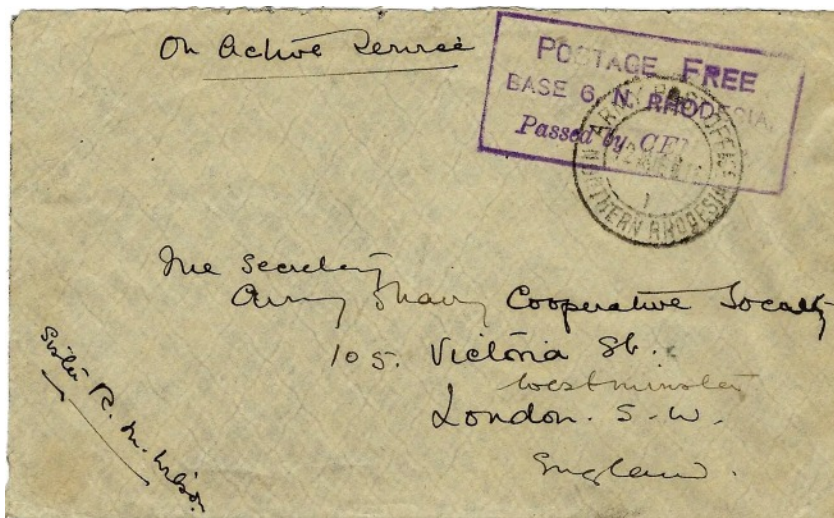 On Active Service
POSTAGE FREE
BASE 6, N. RHODESIA,
Passed by CE
ARMY POST OFFICE
1
NORTHERN RHODESIA
The Secretary
Army & Navy Cooperative Society
105. Victoria St.
Westminster
London. S. W.
England.
Sister R. M. Wilson